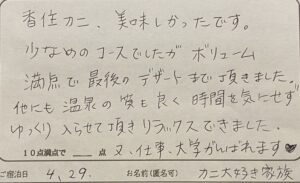 香住カニ、美味しかったです。
少なめのコースでしたがボリューム
満点で最後のデザートまで頂きました。
他にも温泉の質も良く時間を気にせず
ゆっくり入らせて頂きリラックスできました。
10点満点で 点 又、仕事、大学がんばれます♥
ご宿泊日 4.29. お名前(匿名可) カニ大好き家族